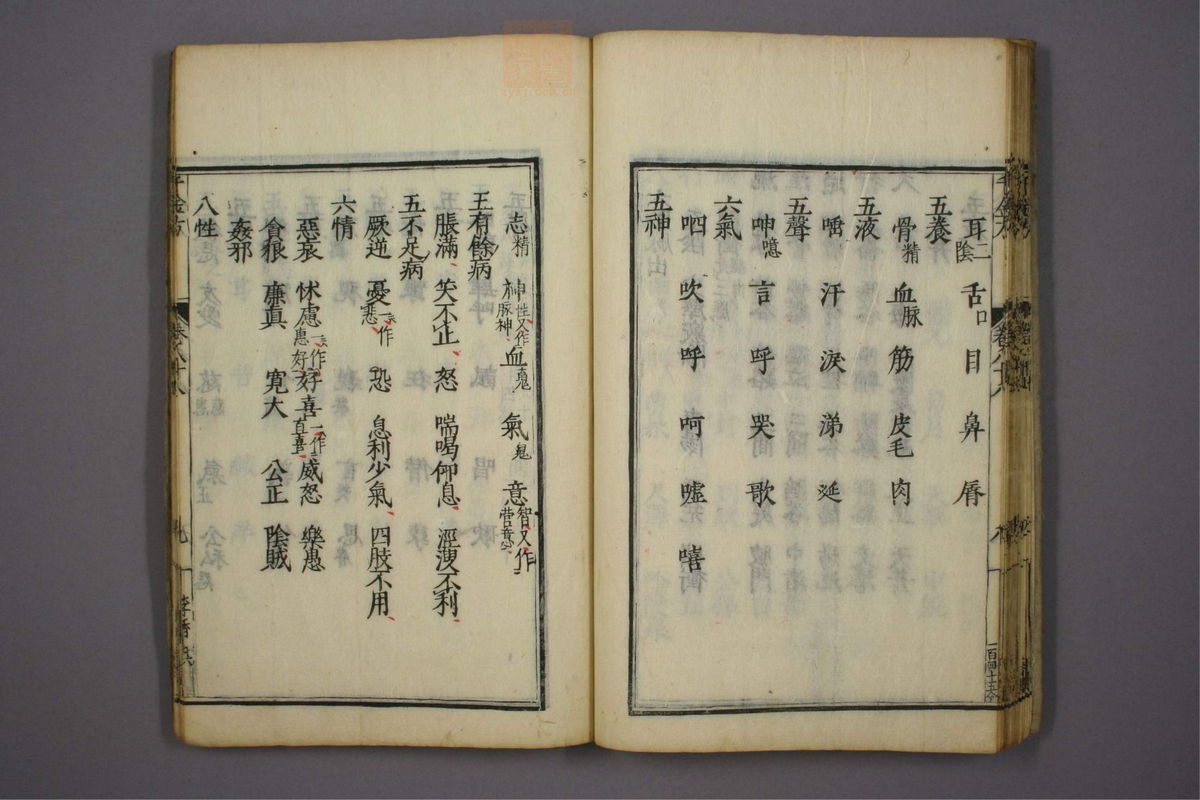 耳二陰 舌口 目 鼻 脣
五養
骨精 血脉 筋 皮毛 肉
五液
唾 汗 淚 涕 涎
五聲
呻噫 言 呼 哭 歌
六氣
呬 吹 呼 呵 噓 嘻
五神
志精 神性又作脉神 血䰟 氣鬼 意智又作営意
王有餘病
脹滿 笑不止 怒 喘喝仰息 涇溲不利
五不足病
厥逆 憂一作悲 恐 息利少氣 四肢不用
六情
惡哀 怵慮一作惠好 好喜一作直喜 威怒 樂愚
貪狠 廉眞 寛大 公正 陰賊
姦邪
八性